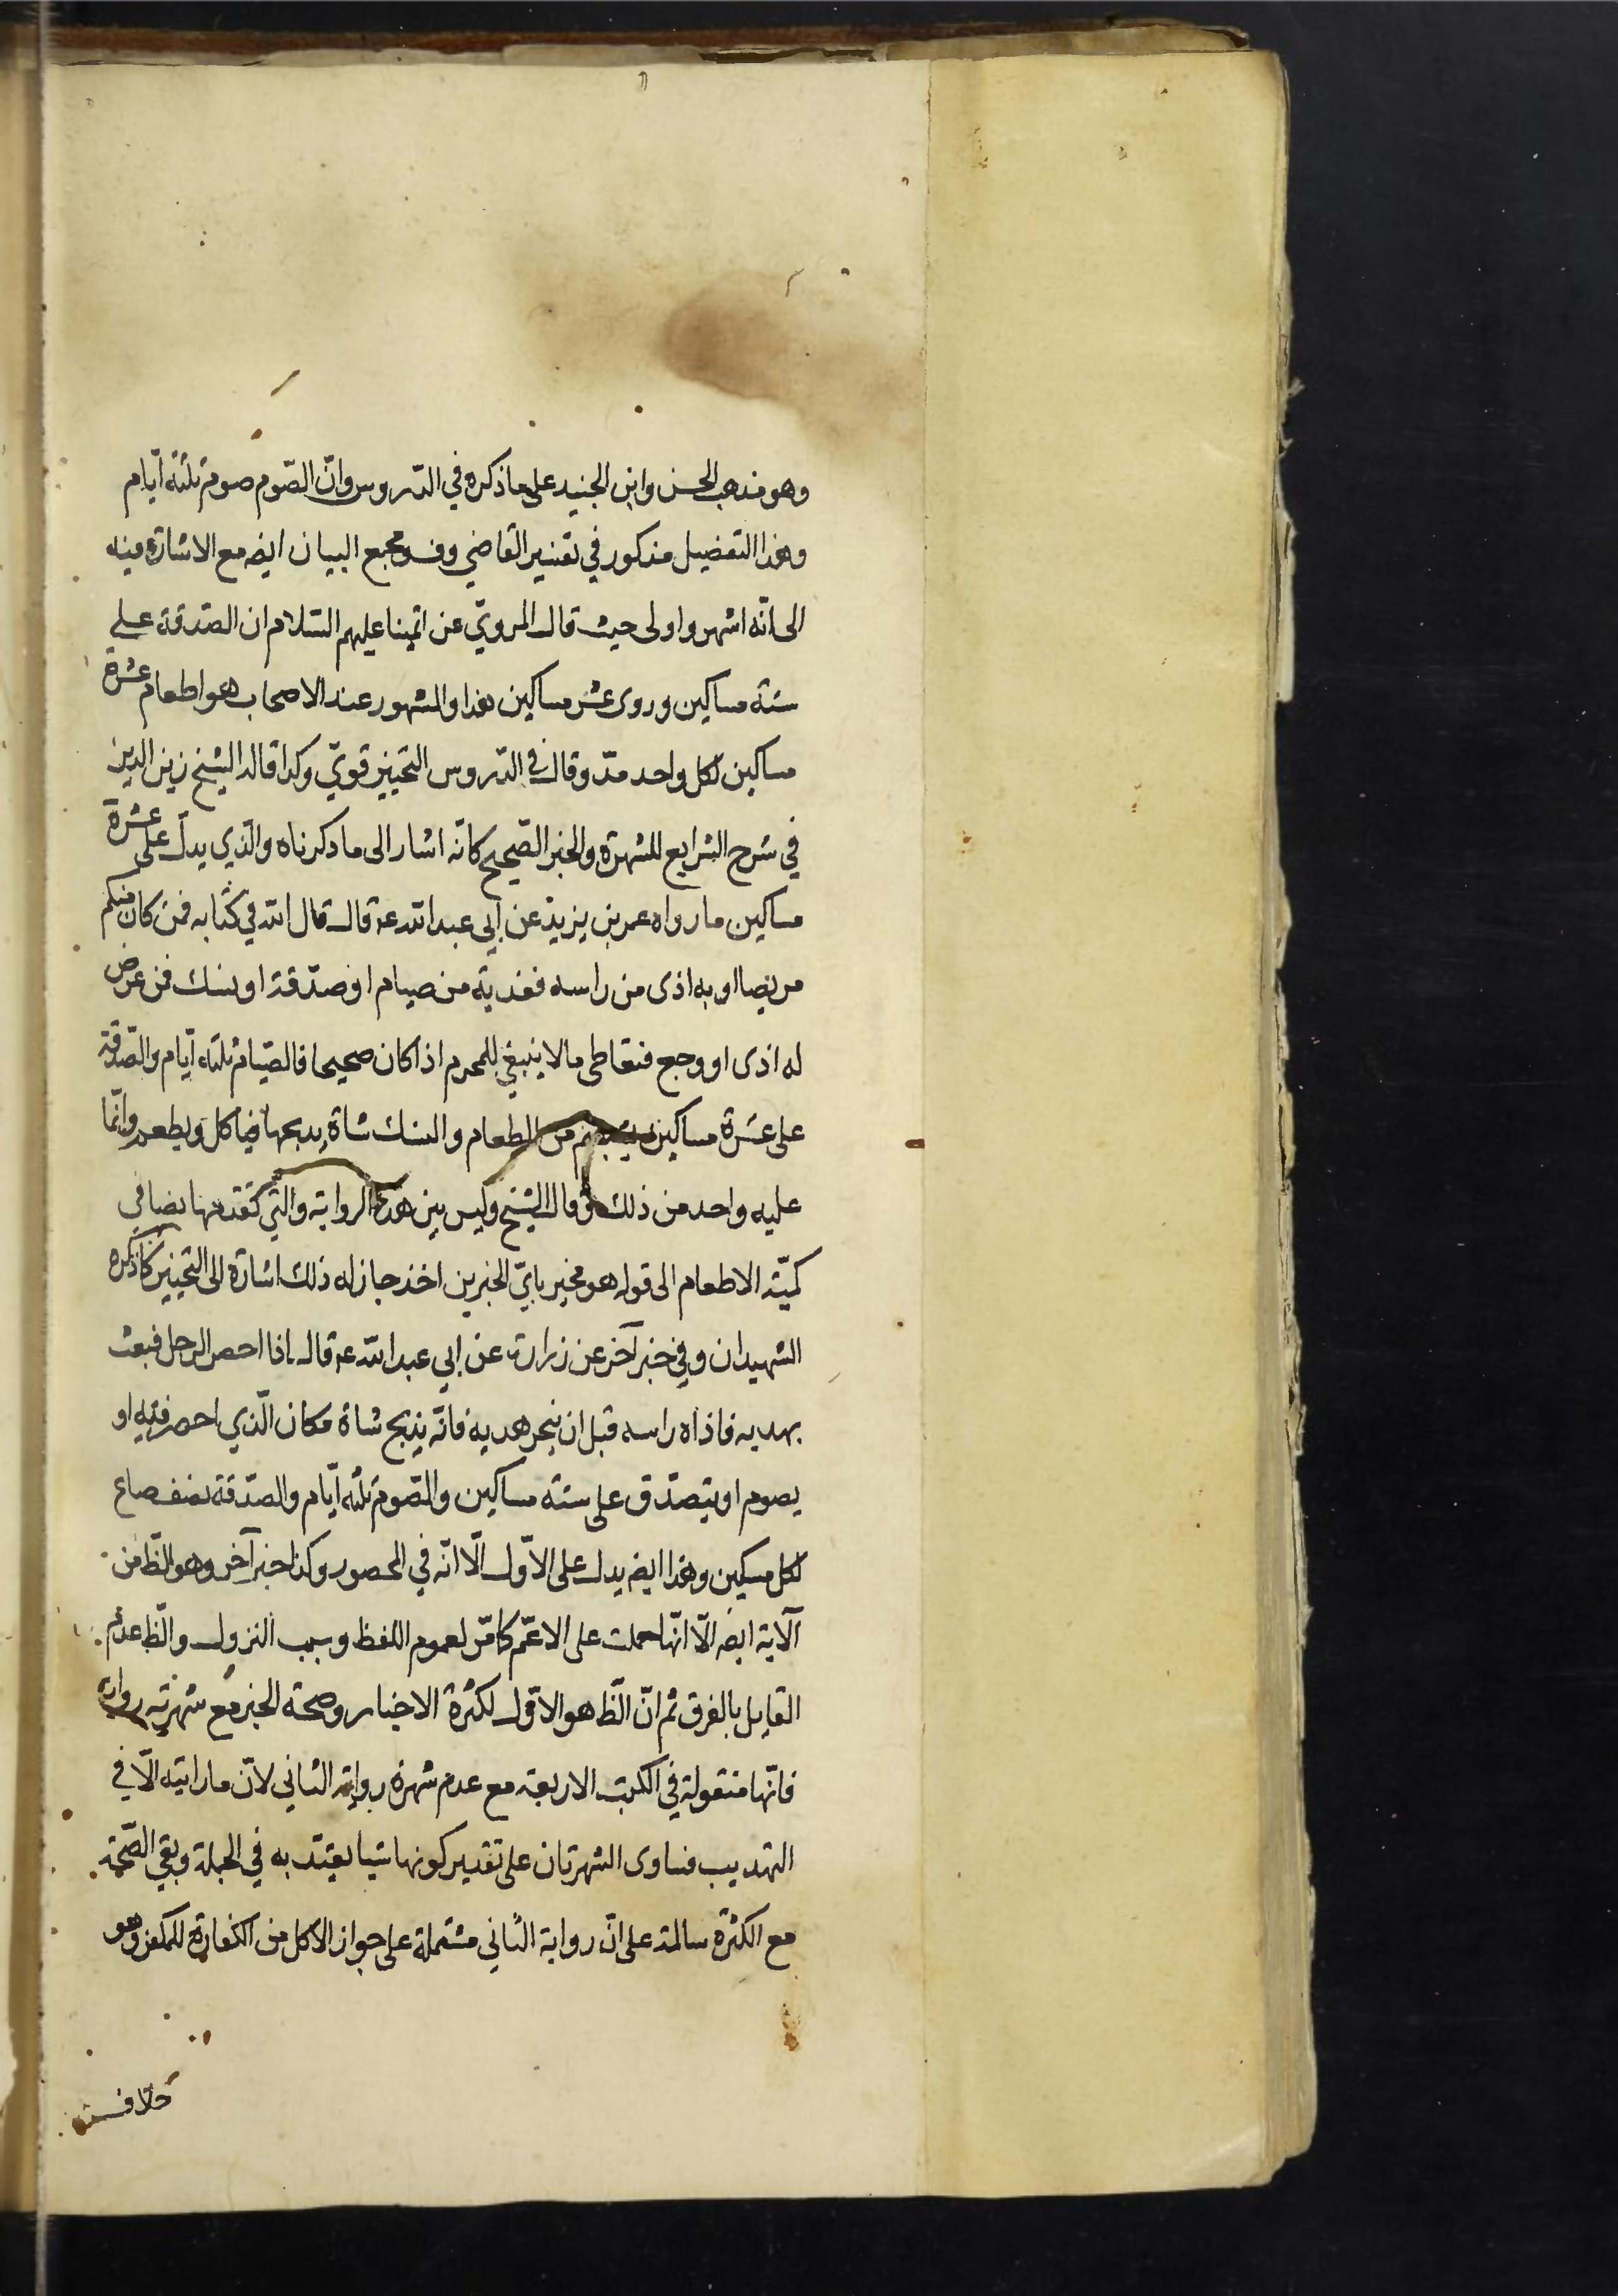 وهو مذهب الحسن وابن الجنيد على ما ذكره في الدروس وانّ الصّوم صوم ثلثة ايّام
وهذا التفصيل مذكور في تفسير القاضي وفي مجمع البيان ايضه مع الاشارة فيه
الى انّه اشهر واولى حيث قال المرويّ عن ائمّينا عليهم السّلام ان الصّدقة على
ستة مساكين وروى عشر مساكين هذا والمشهور عند الاصحاب هو اطعام عشرة
مساكين لكل واحد مدّ وقال في الدّروس التخيير قويّ وكذا قال الشيخ زين الدين
في شرح الشرايع للشهرة والخبر الصّحيح كانّه اشار الى ما ذكرناه والّذي يدلّ على عشرة
مساكين ما رواه عمر بن يزيد عن ابي عبد الله عه قال قال الله في كتابه فمن كان منكم
مريضا او به اذى من راسه ففدية من صيام او صدّقة او نسك فمن عرض
له اذى او وجع فتعاطى ما لا ينبغي للمحرم اذا كان صحيحا فالصّيام ثلثة ايّام والصّدقة
على عشرة مساكين يشبعهم من الطعام والنسك شاة يذبحها فياكل ويطعم وانّما
عليه واحد من ذلك وقال الشيخ وليس بين هذه الرواية والتي تقدمها تضا في
كميّة الاطعام الى قوله هو مخير بايّ الخبرين اخذ جاز له ذلك اشارة الى التخيير كما ذكره
الشهيدان وفي خبر آخر عن زرارة عن ابي عبد الله عه قال اذا احصر الرجل فبعث
بهديه فاذاه راسه قبل ان ينحر هديه فانّه يذبح شاة مكان الّذي احصر فيه او
يصوم او يتصدّق على ستة مساكين والصّوم ثلثة ايّام والصّدقة نصف صاع
لكل مسكين وهذا ايضه يدل على الاوّل الّا انّه في المحصور وكذا خبر آخر وهو الظ من
الآية ايضه الّا انّها حملت على الاعمّ كما مّر لعموم اللفظ وسبب النزول والّظ عدم
القايل بالفرق ثم انّ الّظ هو الاوّل لكثرة الاخبار وصحة الخبر مع شهرته رواية
فانّها منقولة في الكتب الاربعة مع عدم شهرة رواية الثاني لانّ ما رايته الّا في
التهذيب فتساوى الشهرتان على تقدير كونها شيئا يعتدّ به في الجملة وبقي الصّحّة
مع الكثرة سالمة على انّ رواية الثّاني مشتملة على جواز الاكل من الكفارة للمكفر وهو
خلاف